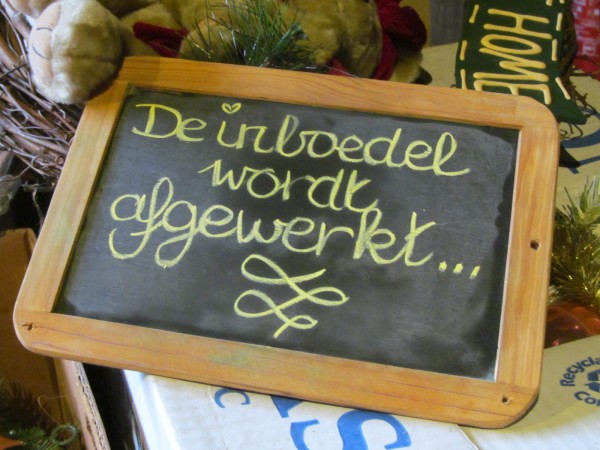 De inboedel
wordt
afgewerkt...
HOME
Recyclable